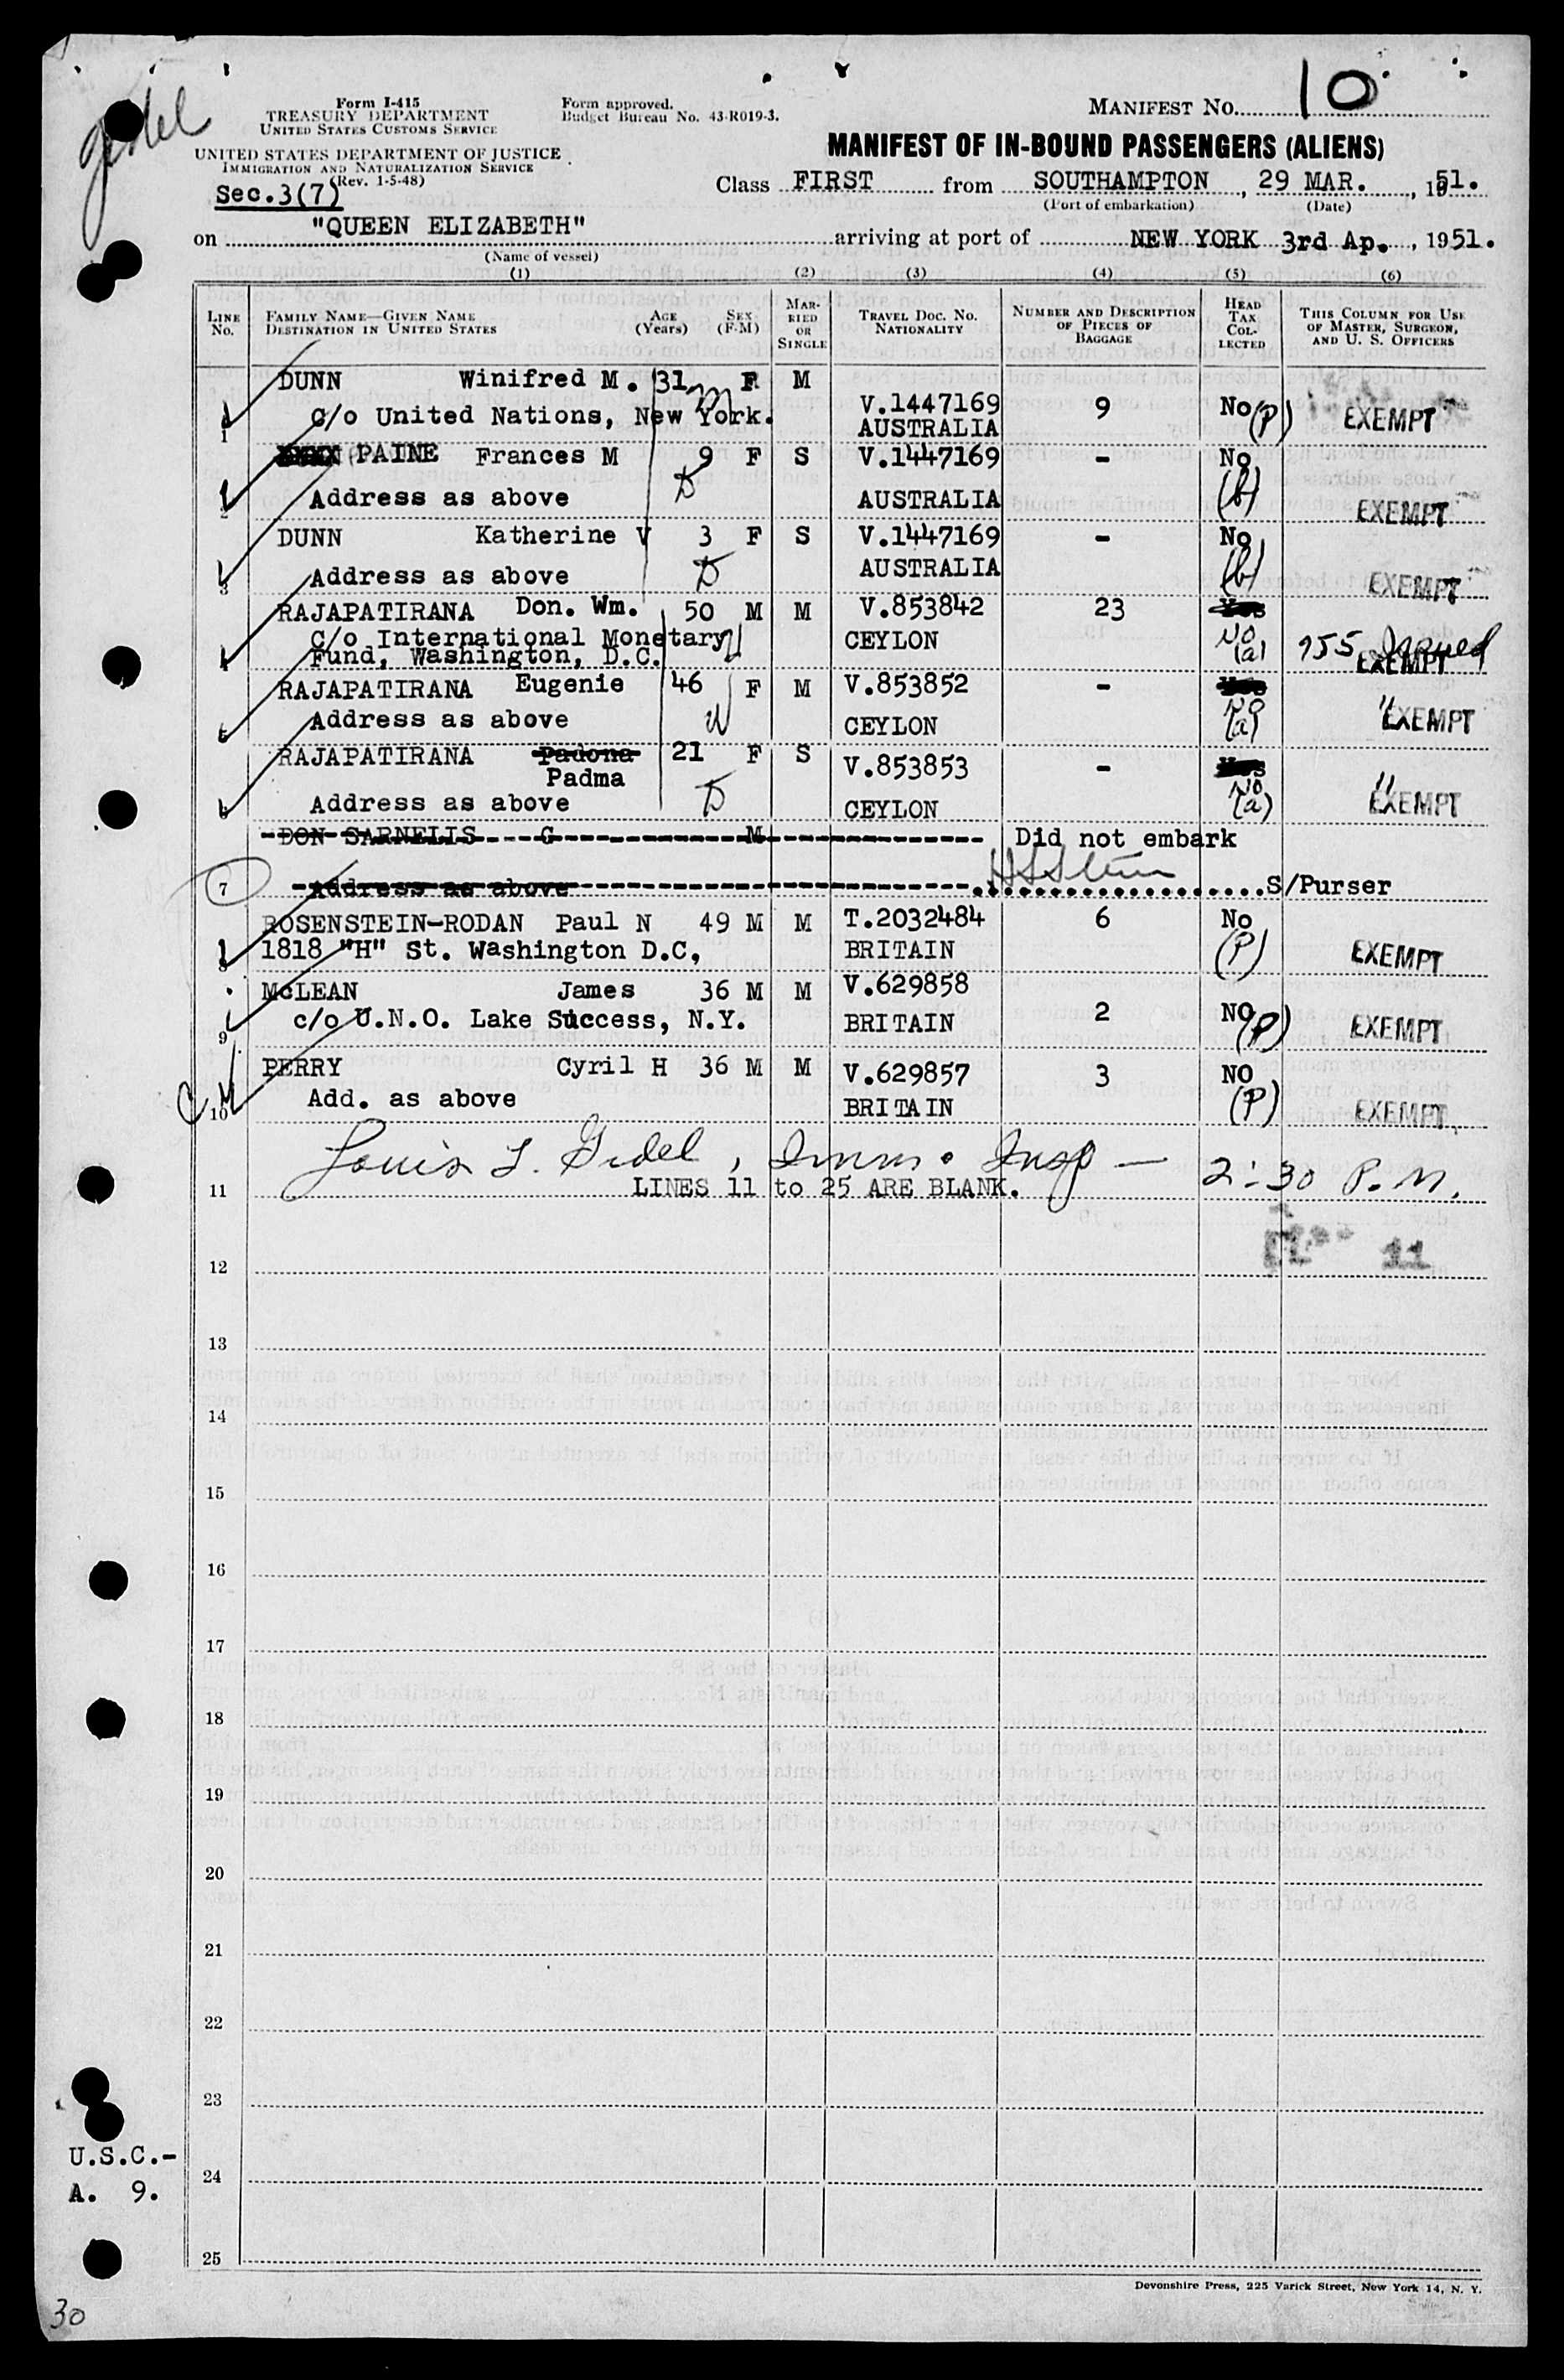 Gidel
Form I-415
TREASURY DEPARTMENT
UNITED STATES CUSTOMS SERVICE
UNITED STATES DEPARTMENT OF JUSTICE
IMMIGRATION AND NATURALIZATION SERVICE
(Rev. 1-5-48)
Sec.3(7)
Form approved.
Budget Bureau No. 43-R019-3.
MANIFEST No. 10
MANIFEST OF IN-BOUND PASSENGERS (ALIENS)
Class FIRST from SOUTHAMPTON, 29 MAR., 1951.
(Port of embarkation) (Date)
on "QUEEN ELIZABETH" arriving at port of NEW YORK 3rd Ap., 1951.
(Name of vessel)
(1) (2) (3) (4) (5) (6)
LINE No. FAMILY NAME—GIVEN NAME DESTINATION IN UNITED STATES AGE (Years) SEX (F-M) MARRIED OR SINGLE TRAVEL DOC. NO. NATIONALITY NUMBER AND DESCRIPTION OF PIECES OF BAGGAGE HEAD TAX COLLECTED THIS COLUMN FOR USE OF MASTER, SURGEON, AND U. S. OFFICERS
DUNN Winifred M. 31 F M
1 C/o United Nations, New York. V.1447169 AUSTRALIA 9 No (P) EXEMPT
PAINE Frances M 9 F S V.1447169 - No
2 Address as above D AUSTRALIA (b) EXEMPT
DUNN Katherine V 3 F S V.1447169 - No
3 Address as above D AUSTRALIA (b) EXEMPT
RAJAPATIRANA Don. Wm. 50 M M V.853842 23 Yes
4 C/o International Monetary Fund, Washington, D.C. W CEYLON No (a) 955 Issued EXEMPT
RAJAPATIRANA Eugenie 46 F M V.853852 - Yes
5 Address as above W CEYLON No (a) " EXEMPT
RAJAPATIRANA Padona 21 F S V.853853 - Yes
Padma
6 Address as above D CEYLON No (a) " EXEMPT
DON SARNELIS G M Did not embark
7 Address as above S/Purser
ROSENSTEIN-RODAN Paul N 49 M M T.2032484 6 No
8 1818 "H" St. Washington D.C, BRITAIN (P) EXEMPT
McLEAN James 36 M M V.629858
9 c/o U.N.O. Lake Success, N.Y. BRITAIN 2 NO (P) EXEMPT
PERRY Cyril H 36 M M V.629857 3 NO
10 Add. as above BRITAIN (P) EXEMPT
Louis L. Gidel, Imm. Insp — 2:30 P.M.
11 LINES 11 to 25 ARE BLANK.
11
12
13
14
15
16
17
18
19
20
21
22
23
U.S.C.-
24
A. 9.
25
Devonshire Press, 225 Varick Street, New York 14, N. Y.
30